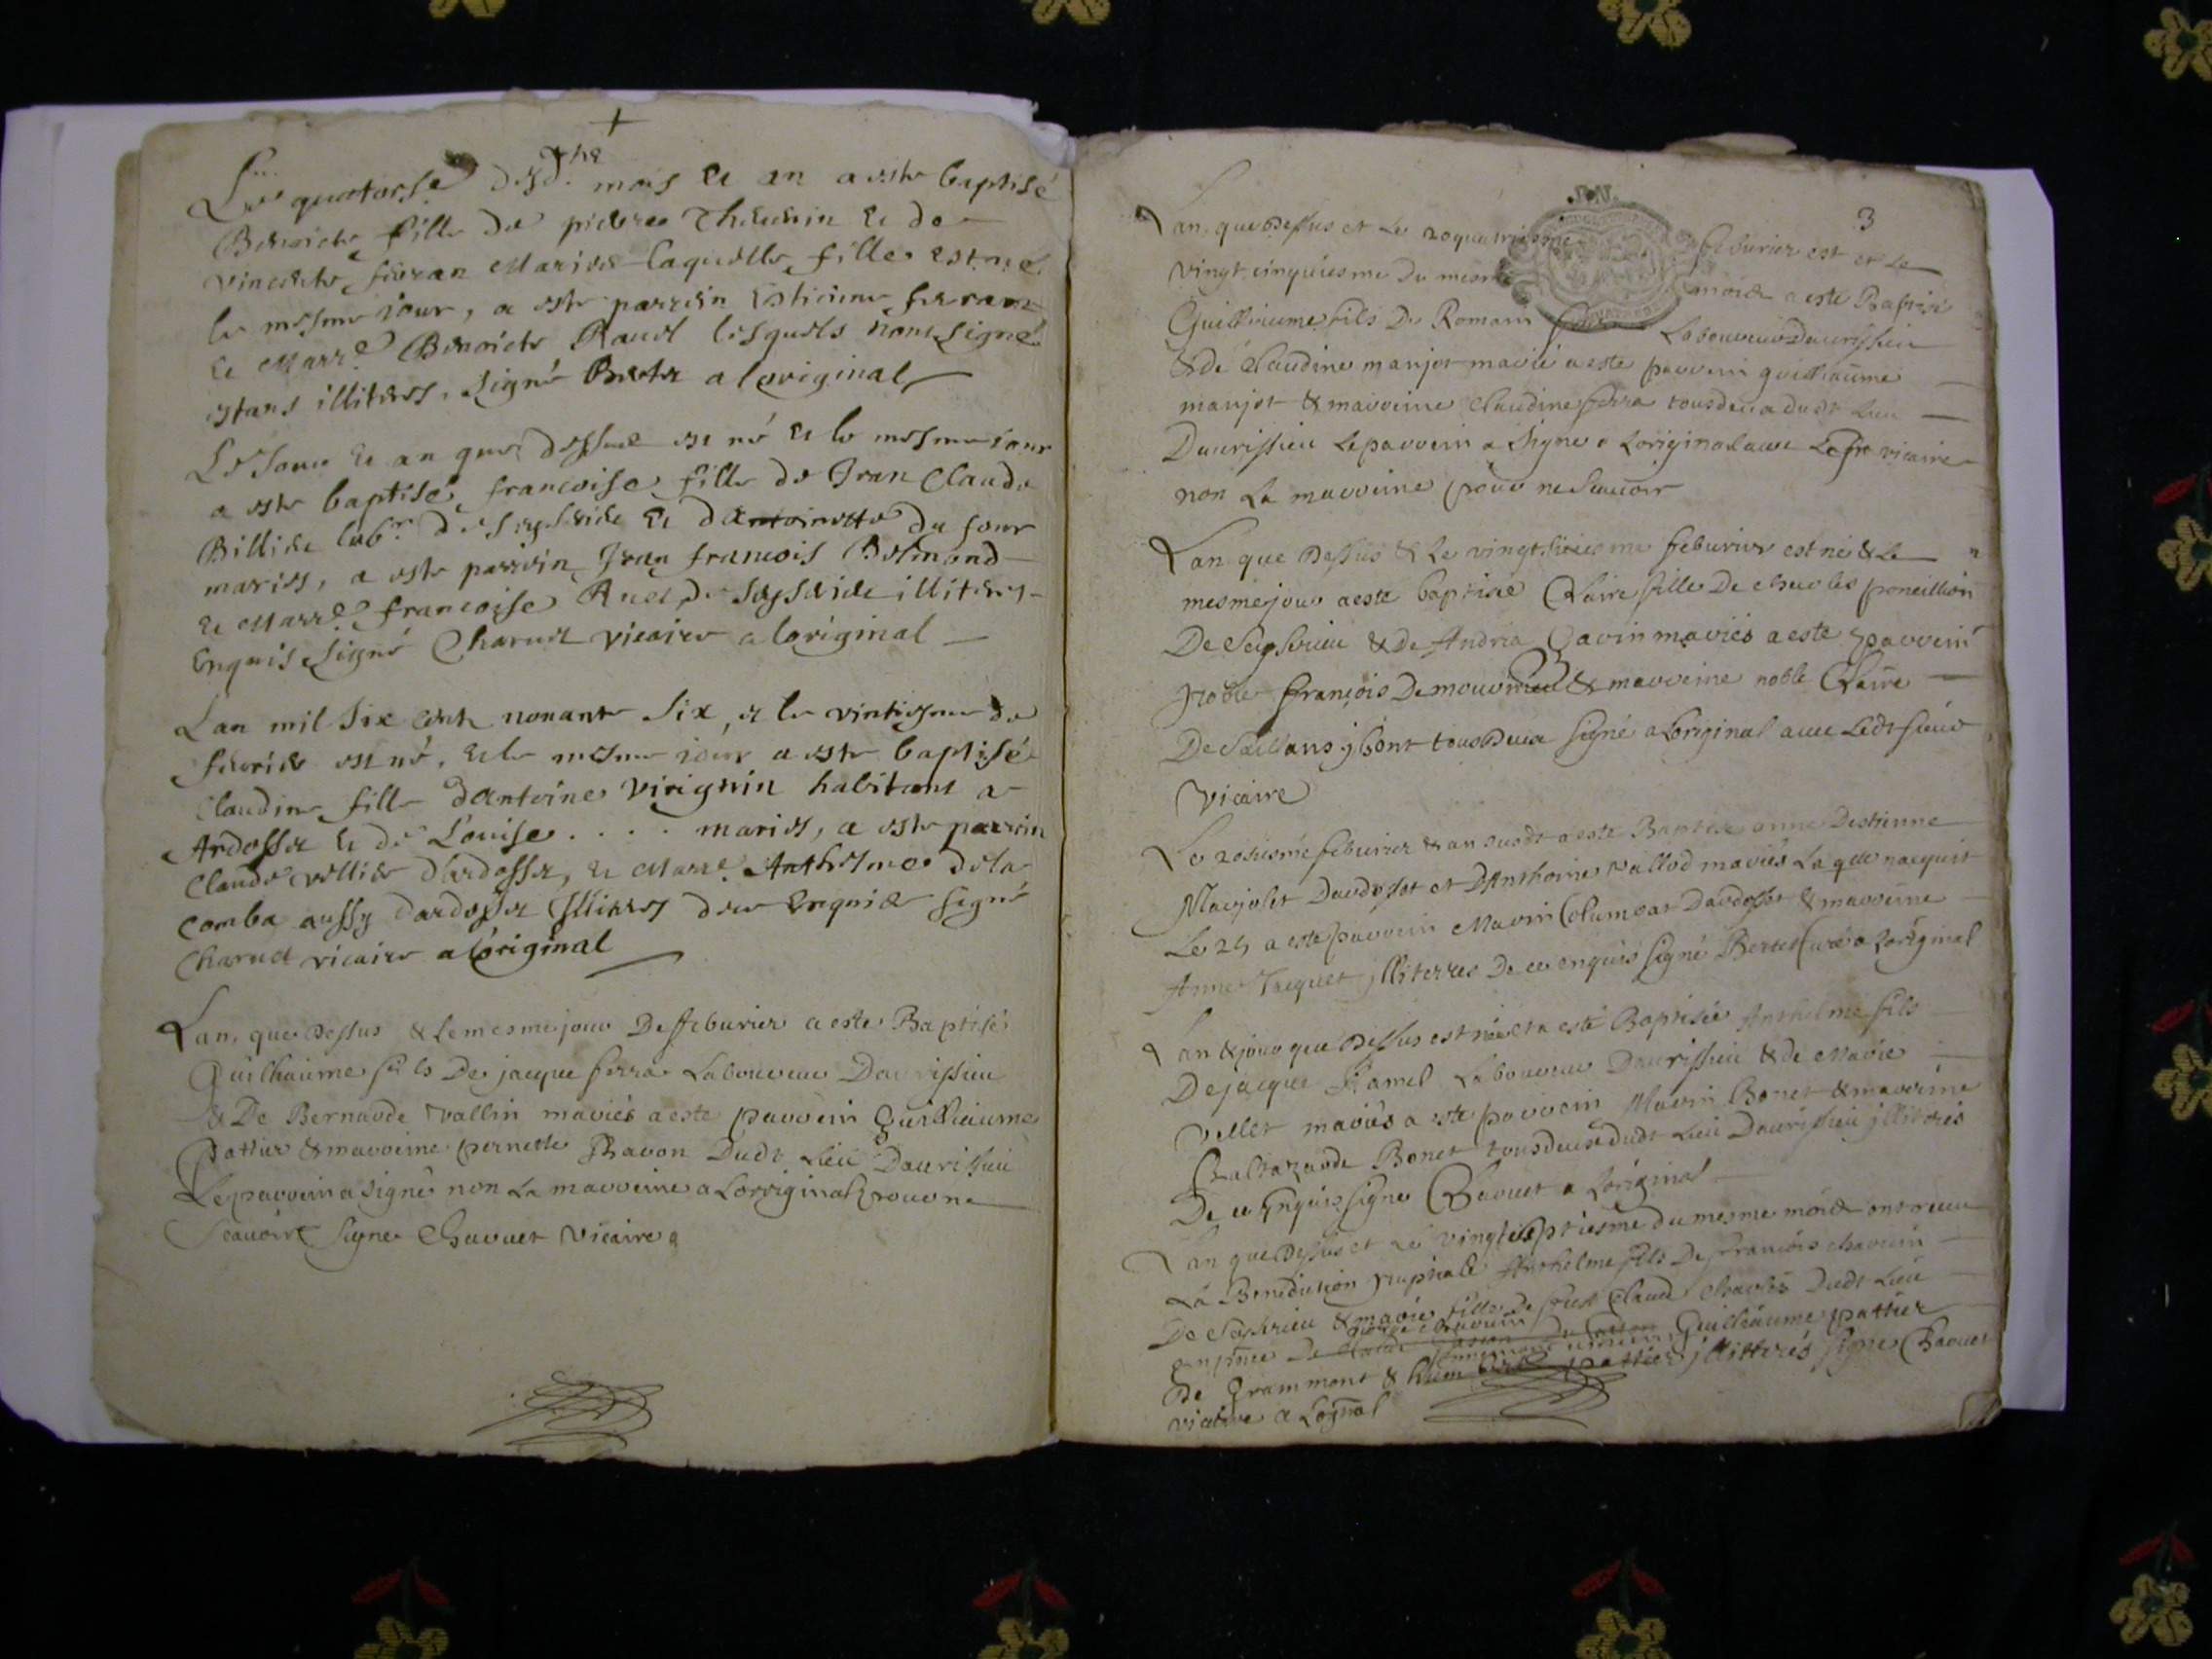 Le quatorse dud. mois et an a este baptisé
Benoiete fille de pierre Theuenin et de
vincente feuran Maries laquelle fille est né
le mesme iour, a este parrein Estienne feuran
et Marr.e Benoiete Raudt lesquels nont signé
estans illiteres. Signé Bertet a loriginal
Le Jour et an que dessus est né et le mesme iour
a este baptisé francoise fille de Jean Claude
Billiet lab.r de seysseriee et dantoinette du four
maries, a este parrein Jean francois Bolmond
et Marr.e francoise de illiteres
Enquis Signé Charuet vicaire a loriginal
Lan mil Six cent nonante Six, et le vintiesme de
feurier est né, et le mesme iour a este baptisé
Claudine fille dAntoine Virignin habitant a
Ardosset et de Louise . . . . maries, a este parrein
Claude vellier dArdosset, et Marr.e Anthelme dela
comba aussy dardosset Illiteres de ce Enquis signé
Charuet vicaire a loriginal
Lan que Dessus & le mesme jour De feburier a este Baptisé
Guilhaume fils De jacque ferra Laboureur Daurissieu
& De Bernarde vallin mariés a este parrein Guilliaume
pattier & marreine pernette Ravon Dudt Lieu Daurissieu
Le parrein a signé non La marreine a Lorriginal pour ne
Scauoir Signe Charuet Vicaire
3
Lan que Dessus et Le 20quatriesme feburier est et Le
vingt cinquiesme Du mesme mois a este Baptisé
Guilliaume fils De Romain Laboureur Daurissieu
& de Claudine marjot marié a este parrein guilliaume
marjot & marreine Claudine ferra tous deux dudt Lieu
Daurissieu Le parrein a Signe a Loriginal auec Le Sr vicaire
non La marreine pour ne Scauoir
Lan que Dessus & Le vingt sixiesme feburier est né & Le
mesme jour a este baptisée Claire fille De charles poneillion
De Seyserieu & De Andria Gavin mariés a este parrein
Noble françois De mouvrieu & marreine noble Claire
De Seillans jls ont tous Deux signé a Loriginal auec Ledt sieur
Vicaire
Le 20sixme feburier & an susdt a este Baptisé anne Destienne
Marjolet Dardosset et DAnthoine vallod mariés La qlle nacquit
Le 25 a este parrein Marin Columbat Dardosset & marreine
Anne Traquet jlliterres De ce enquis signé Bertet Curé a Loriginal
Lan & jour que Dessus est né et a esté Baptisée Anthelme fils
De jacques Hamel Laboureur Daurissieu & de Marie
vellet mariés a este parrein Marin Bonet & marreine
Baltazarde Bonet tous deux dudt Lieu Daurissieu jlliterés
De ce Enquis signe Charuet a Loriginal
Lan que Dessus et Le vingt septiesme du mesme mois ont receu
La Benediction Nuptiale Anthelme fils De françois charuin
De Seyserieu & marie fille De feu Claude Charles Dudt Lieu
enpnce De Guilleaume pattier
De Grammont & pattier jlliterés signe Charuet
vicaire a Loignal